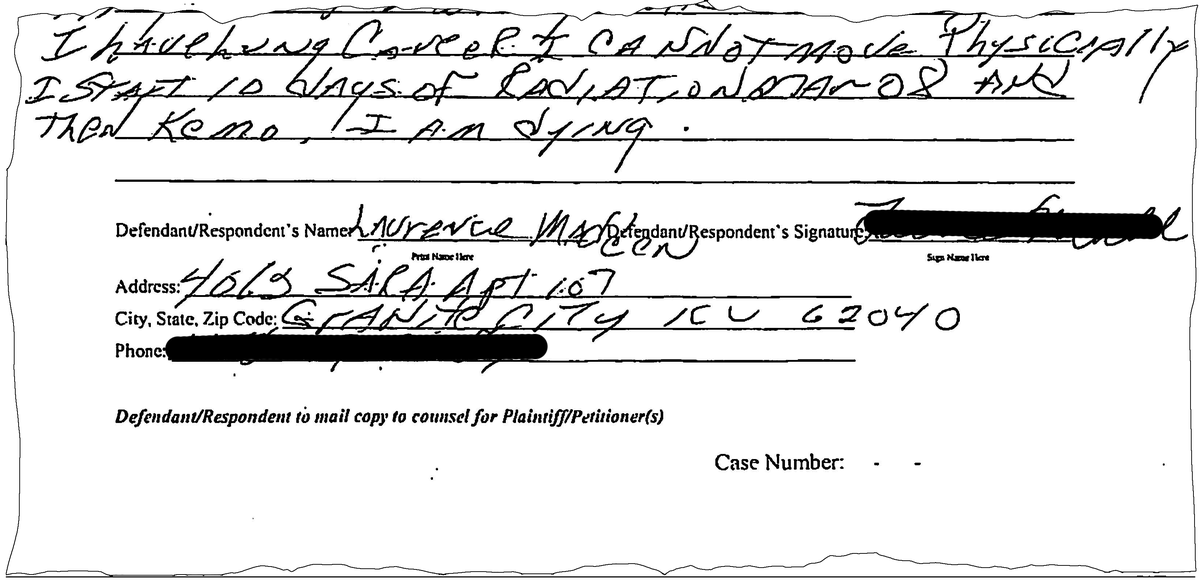 I have Lung Cancer & I CANNOT move Physically
I START 10 days of RADIATION MAR 08 AND
Then Kemo, I Am dying.
Defendant/Respondent's Name: Laurence Defendant/Respondent's Signature:
Print Name Here Sign Name Here
Address: SARA Apt 107
City, State, Zip Code: GRANITE CITY 62040
Phone:
Defendant/Respondent to mail copy to counsel for Plaintiff/Petitioner(s)
Case Number: - -